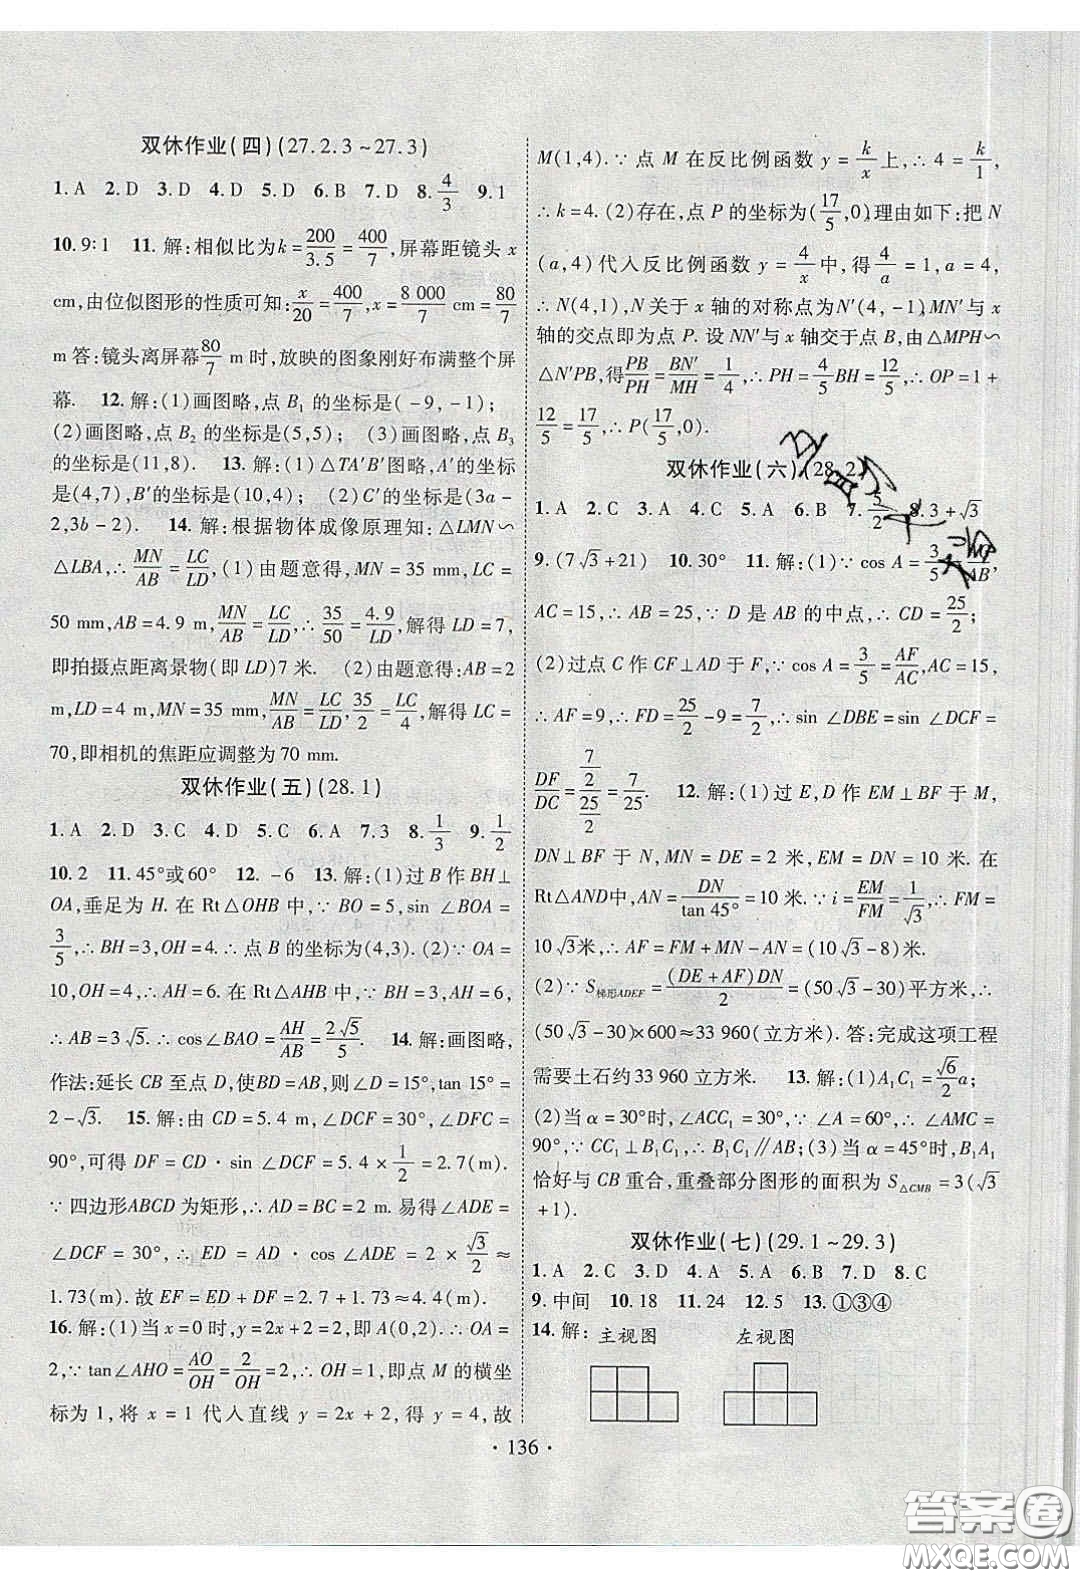 双休作业(四)(27.2.3~27.3)
1.A 2.D 3.D 4.A 5.D 6.B 7.D 8.4/3 9.1
10.9∶1 11.解:相似比为k=200/3.5=400/7,屏幕距镜头x
cm,由位似图形的性质可知:x/20=400/7,x=8 000/7 cm=80/7
m 答:镜头离屏幕80/7 m时,放映的图象刚好布满整个屏
幕. 12.解:(1)画图略,点B₁的坐标是(-9,-1);
(2)画图略,点B₂的坐标是(5,5); (3)画图略,点B₃
的坐标是(11,8). 13.解:(1)△TA′B′图略,A′的坐
标是(4,7),B′的坐标是(10,4); (2)C′的坐标是(3a-
2,3b-2). 14.解:根据物体成像原理知:△LMN∽
△LBA,∴MN/AB=LC/LD,(1)由题意得,MN=35 mm,LC=
50 mm,AB=4.9 m,MN/AB=LC/LD,∴35/50=4.9/LD,解得LD=7,
即拍摄点距离景物(即LD)7米. (2)由题意得:AB=2
m,LD=4 m,MN=35 mm,MN/AB=LC/LD,35/2=LC/4,解得LC=
70,即相机的焦距应调整为70 mm.
双休作业(五)(28.1)
1.A 2.D 3.C 4.D 5.C 6.A 7.3 8.1/3 9.1/2
10.2 11.45°或60° 12.-6 13.解:(1)过B作BH⊥
OA,垂足为H.在Rt△OHB中,∵BO=5,sin∠BOA=
3/5,∴BH=3,OH=4.∴点B的坐标为(4,3).(2)∵OA=
10,OH=4,∴AH=6.在Rt△AHB中,∵BH=3,AH=6,
∴AB=3√5.∴cos∠BAO=AH/AB=2√5/5. 14.解:画图略,
作法:延长CB至点D,使BD=AB,则∠D=15°,tan 15°=
2-√3. 15.解:由CD=5.4 m,∠DCF=30°,∠DFC=
90°,可得DF=CD·sin∠DCF=5.4×1/2=2.7(m).
∵四边形ABCD为矩形,∴AD=BC=2 m.易得∠ADE=
∠DCF=30°,∴ED=AD·cos∠ADE=2×√3/2≈
1.73(m).故EF=ED+DF=2.7+1.73≈4.4(m).
16.解:(1)当x=0时,y=2x+2=2,即A(0,2).∴OA=
2,∵tan∠AHO=AO/OH=2/OH=2,∴OH=1,即点M的横坐
标为1,将x=1代入直线y=2x+2,得y=4,故
M(1,4).∵点M在反比例函数y=k/x上,∴4=k/1,
∴k=4.(2)存在,点P的坐标为(17/5,0).理由如下:把N
(a,4)代入反比例函数y=4/x中,得4/a=1,a=4,
∴N(4,1),N关于x轴的对称点为N′(4,-1),MN′与x
轴的交点即为点P.设NN′与x轴交于点B,由△MPH∽
△N′PB,得PB/PH=BN′/MH=1/4,∴PH=4/5BH=12/5,∴OP=1+
12/5=17/5,∴P(17/5,0).
双休作业(六)(28.2)
1.A 2.C 3.A 4.A 5.A 6.B 7.5/2 8.3+√3
9.(7√3+21) 10.30° 11.解:(1)∵cos A=3/5=AC/AB,
AC=15,∴AB=25,∵D是AB的中点,∴CD=25/2;
(2)过点C作CF⊥AD于F,∵cos A=3/5=AF/AC,AC=15,
∴AF=9,∴FD=25/2-9=7/2,∴sin∠DBE=sin∠DCF=
DF/DC=(7/2)/(25/2)=7/25. 12.解:(1)过E,D作EM⊥BF于M,
DN⊥BF于N,MN=DE=2米,EM=DN=10米.在
Rt△AND中,AN=DN/tan 45°=10米.∵i=EM/FM=1/√3,∴FM=
10√3米.∴AF=FM+MN-AN=(10√3-8)米.
(2)∵S梯形ADEF=(DE+AF)DN/2=(50√3-30)平方米,∴
(50√3-30)×600≈33 960(立方米).答:完成这项工程
需要土石约33 960立方米. 13.解:(1)A₁C₁=√6/2a;
(2)当α=30°时,∠ACC₁=30°,∵∠A=60°,∴∠AMC=
90°,∵CC₁⊥B₁C₁,∴B₁C₁∥AB;(3)当α=45°时,B₁A₁
恰好与CB重合,重叠部分图形的面积为S△CMB=3(√3
+1).
双休作业(七)(29.1~29.3)
1.A 2.C 3.D 4.A 5.A 6.B 7.D 8.C
9.中间 10.18 11.24 12.5 13.①③④
14.解: 主视图 左视图
·136·
答案圈
MXQE.COM